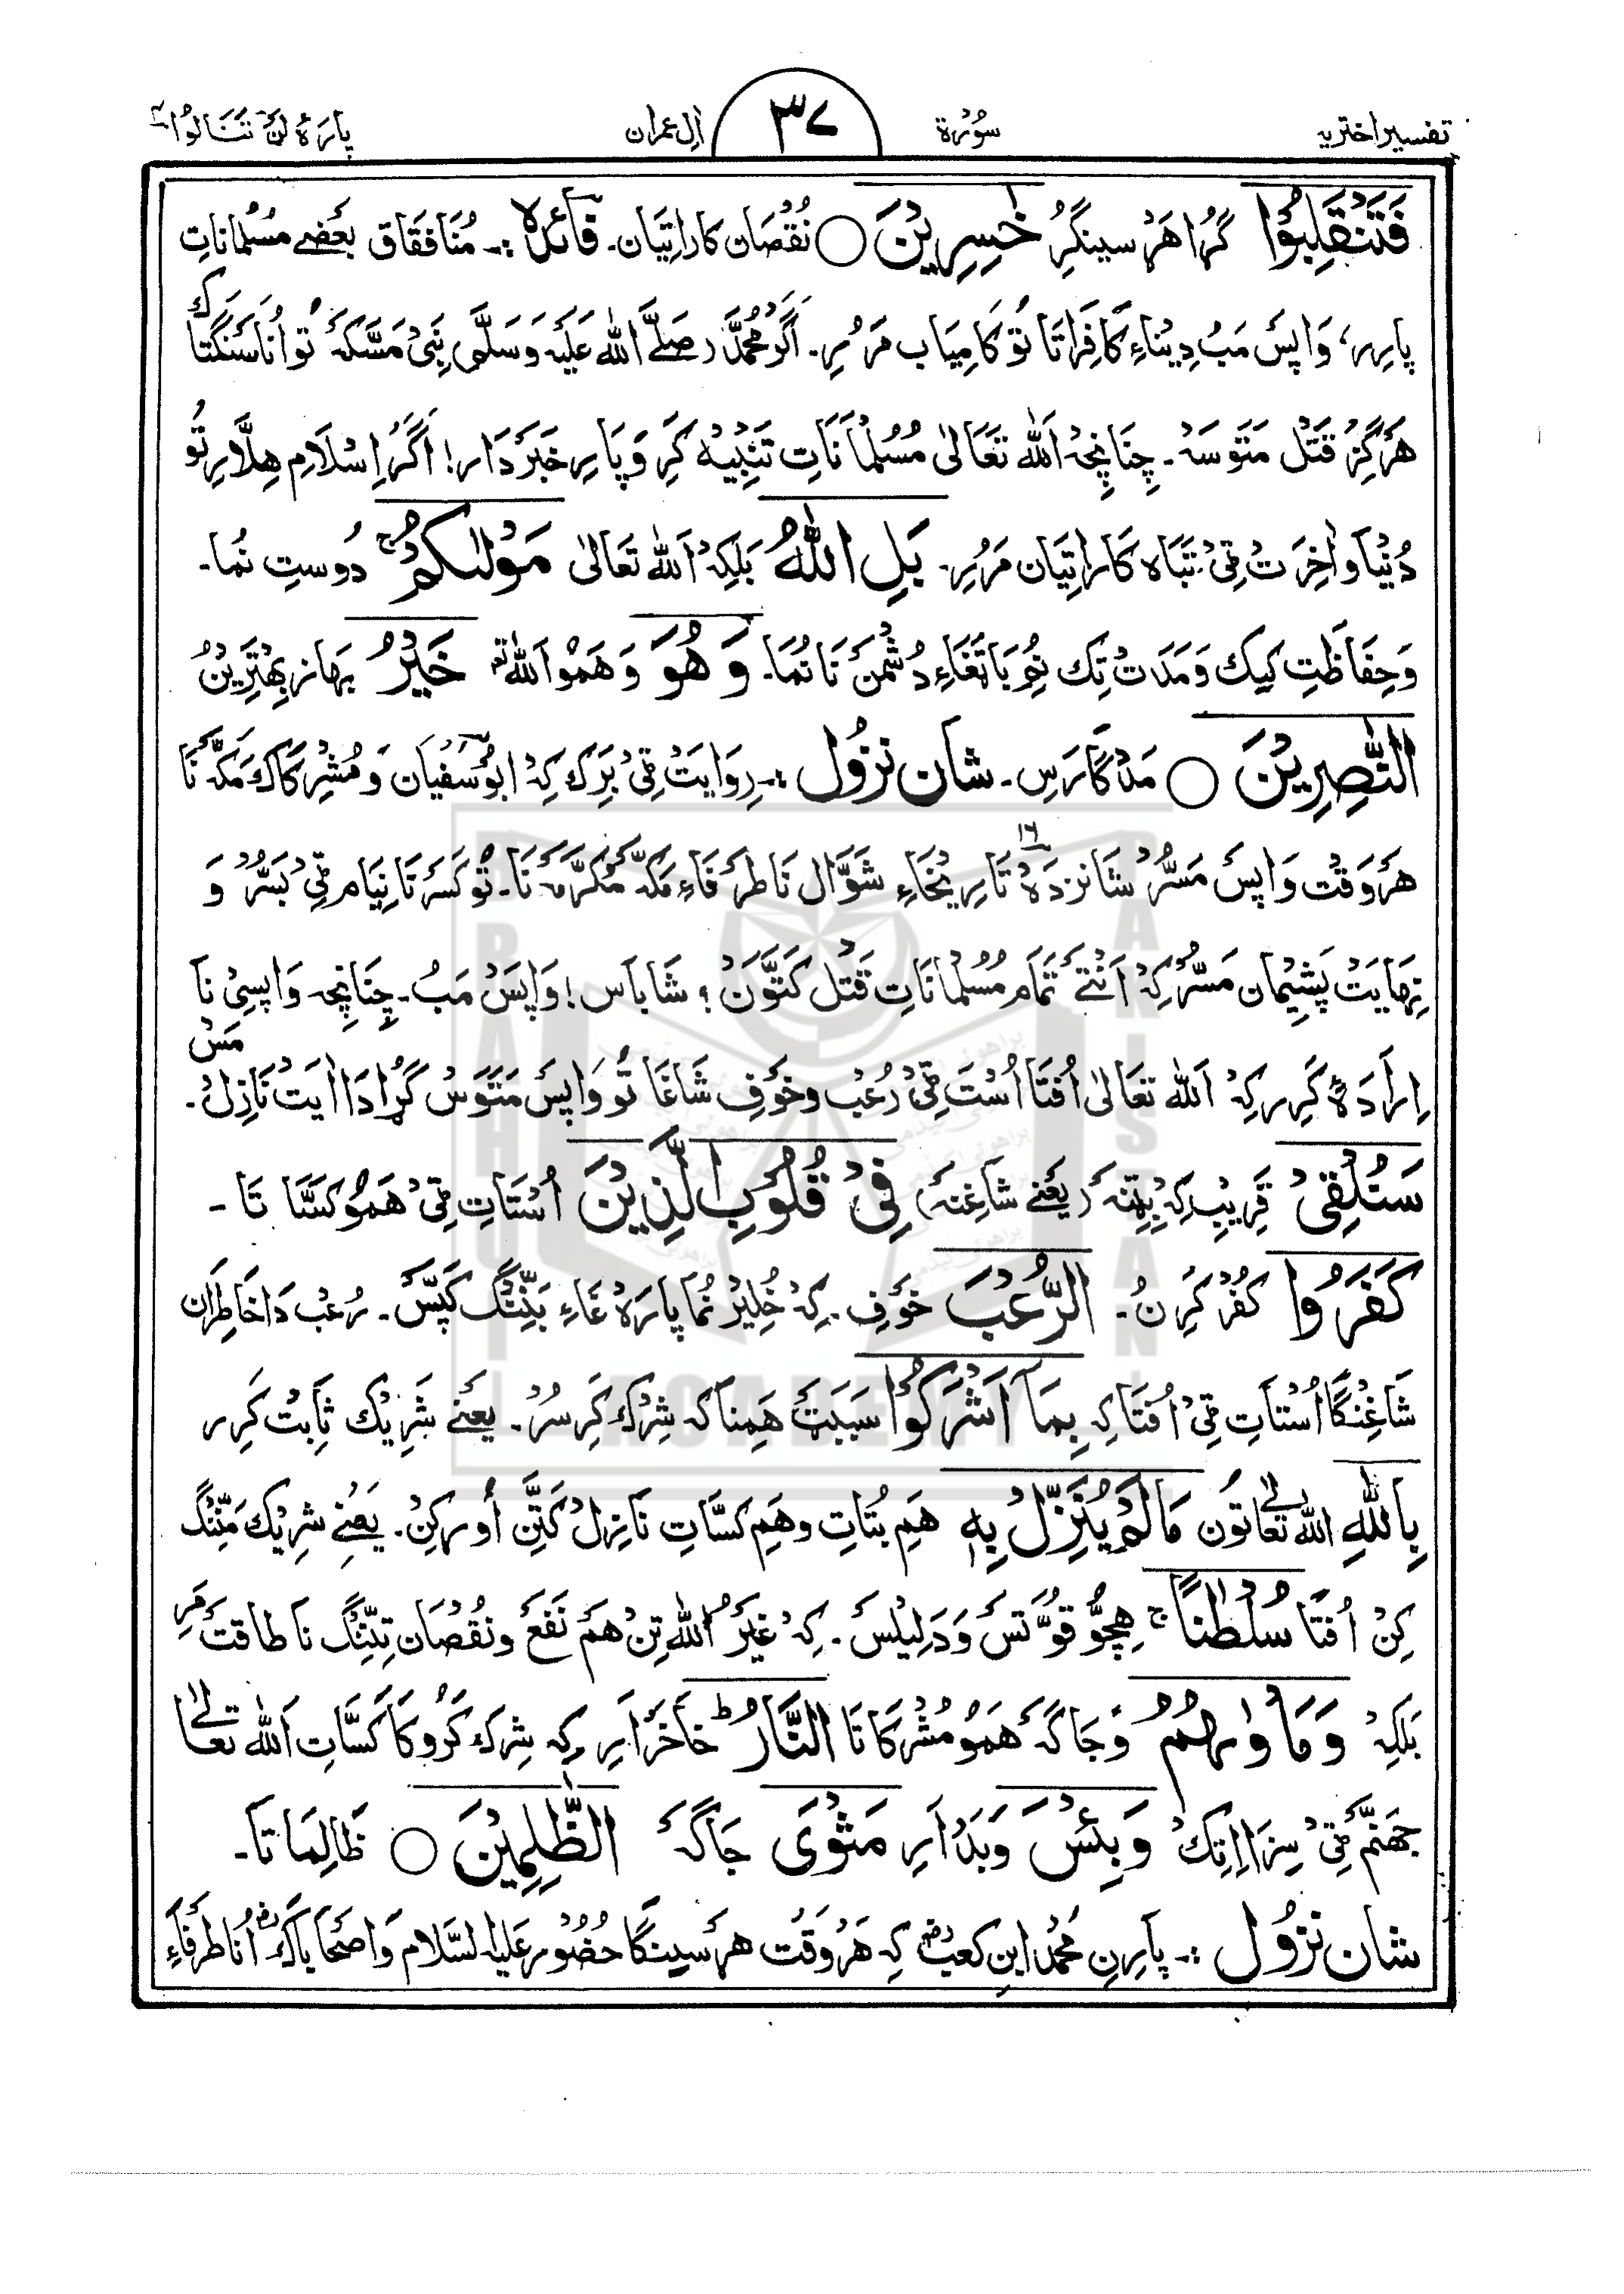 تفسیر اختریہ سُوْرَة ۳۷ اٰلِ عمران پارَہ لَنْ تَنَالُوا ۴
فَتَنْقَلِبُوْا گُڑا ھَڑ سینگِرُ خٰسِرِیْنَ ○ نُقْصَان کاراتِیَان۔ فَائدہ :۔ مُنَافقَاق بعَضے مسُلماناتِ
پارِرر، وَاپسَ مَبُ دِیْناءِ کَافِرَاتَا تَو کَامِیَاب مَرُمِرِ۔ اَگرَ مُحمّدَ (صَلے اللہ عَلیَہ وَسَلّم) نَبِیْ مَسَّکہَ تُو اُنَا سَنگتَاک
ھَرگِزْ قَتَل مَتَوسَہْ۔ چِنَانچِہْ اَللہ تَعَالیٰ مُسْلمَانَاتِ تَنْبِیْہ کرَِ وَپَارِ خَبَردَار! اَگرَ اِسْلَام ھِلّارِ تُو
دُنْیَا وَ اٰخِرَتْ ٹیْ تَبَاہ کَاراتِیَان مَرُرِ۔ بَلِ اللّٰہُ بَلکِہْ اَللہ تَعَالیٰ مَوْلٰىكُمْ ۚ دُوستِ نُما۔
وَحِفَاظَتِ کیک وَمَدَتْ تِک نُم بَا تغَاءِ دُشمُنَ نَا نُمَا۔ وَ ھُوَ وَ ھَمُو اَللہ تع خَیْرُ بَھاز بِھْتَرِیْنُ
النّٰصِرِیْنَ ○ مَدگَارَسِ۔ شان نزُول :۔ رِوَایَتْ ٹیْ بَرِک کِہْ ابُو سُفیَان وَ مُشْرِکَاکَ مَکّہَ نَا
ھَروَقت وَاپسَ مَسُّرْ شَانزدَہْ ۱۶ تَارِیْخَاءِ شَوَّال نَا طرَفاَءِ مَکّہَ مُکرَّمَہ نَا۔ تُو کَسَرنَا نِیَام ٹیْ بَسُّرْ وَ
نِھَایَتْ پَشِیْمان مَسُّرْ کِہْ اَنْتے تَمام مُسْلمانَاتِ قَتْل کَتَوَّنْ؟ شَابَاس! وَاپَسْ مَبُ۔ چِنَانچِہ وَاپسِیْ نَا
اِرَادَہَ کَرِررکِہْ اَللہ تعَالیٰ اُفتَا اُسْتَ ٹیْ رُعْب وخَوفِ شَاغَا تُو وَاپسَ مَتَوَسْ گُڑا دَا اٰیَتْ نَازِلْ مَسْ۔
سَنُلْقِیْ قَرِیبِ کِہْ بِٹِنَّہ (یعْنے شاغِنَہ) فِیْ قُلُوْبِ الَّذِیْنَ اُسْتَاتِ ٹیْ ھَمُو کَسَّا تَا۔
كَفَرُوا کفُرْ کرِنُ۔ الرُّعْبَ خوَفِ۔ کِہْ خُلِیْرْ نُمَا پارَہْ غَاءِ بَنِّنگ کَپَّسَ۔ رُعبْ دَا خَاطِرَان
شَاغِنْگا اُسْتَاتِ ٹیْ اُفتَا کِہ بِمَاۤ اَشْرَكُوْا سَبَبتَ ھَمِنَا کہ شِرْک کَرِسُرْ۔ یعنے شَرِیْک ثَابِتْ کرَِرر
بِاللّٰہِ اللہ تعالیٰ تُون مَا لَمْ یُنَزِّلْ بِہٖ ھَم بُتَاتِ وھَم کسَّاتِ نَازِلْ کَتَّنِ اُورکِنْ۔ یَعْنِے شرِیْک مَنِّنْگ
کِنْ اُفتَا سُلْطٰنًا ۚ ھِچُّو قُوَّتَس وَدَلِیلَس۔ کِہْ غیَرُ اللہ تِن ھَم نَفعَ ونُقْصَان تِنِّنگ نَا طاقت مَرِ
بَلکِہْ وَمَاْوٰىھُمُ وَجَاگہَ ھَمُو مُشْرِکَا تَا النَّارُ ؕ خَاخَرَا رِ کِہ شِرک کَرُوکَا کَسَّاتِ اَللہ تعالیٰ
جَھَنَّم ٹیْ سِزَا اِتِکْ وَ بِئْسَ وَبَدَا رِ مَثْوَی جَاگہَ الظّٰلِمِیْنَ ○ ظالِمَاتَا۔
شان نزُول :۔ پارِنِ مُحمّدُ ابنِ کعبؓ کہ ھَروَقْت ھرَسینگا حضُور عَلیہ السّلام وَاصْحَابَاکؓ اُنا طرَفَاءِ